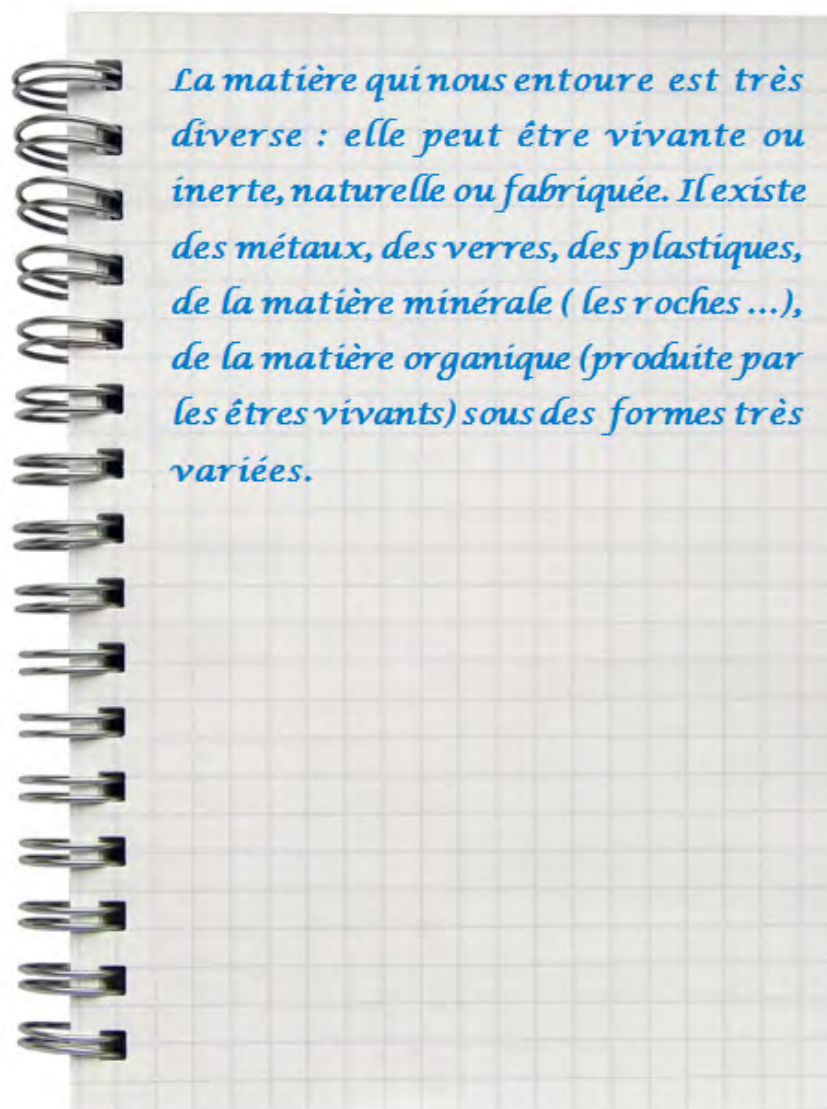 La matière qui nous entoure est très
diverse : elle peut être vivante ou
inerte, naturelle ou fabriquée. Il existe
des métaux, des verres, des plastiques,
de la matière minérale ( les roches ...),
de la matière organique (produite par
les êtres vivants) sous des formes très
variées.